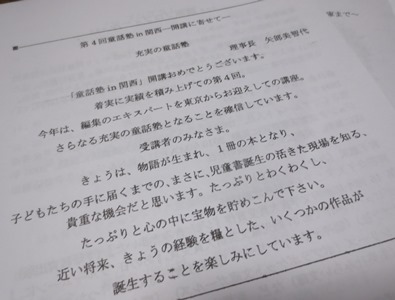 第4回童話塾in関西―開講に寄せて―
充実の童話塾
理事長 矢部美智代
「童話塾in関西」開講おめでとうございます。
着実に実績を積み上げての第4回。
今年は、編集のエキスパートを東京からお迎えしての講座。
さらなる充実の童話塾となることを確信しています。
受講者のみなさま。
きょうは、物語が生まれ、1冊の本となり、
子どもたちの手に届くまでの、まさに、児童書誕生の活きた現場を知る、
貴重な機会だと思います。たっぷりとわくわくし、
たっぷりと心の中に宝物を貯めこんで下さい。
近い将来、きょうの経験を糧とした、いくつかの作品が
誕生することを楽しみにしています。